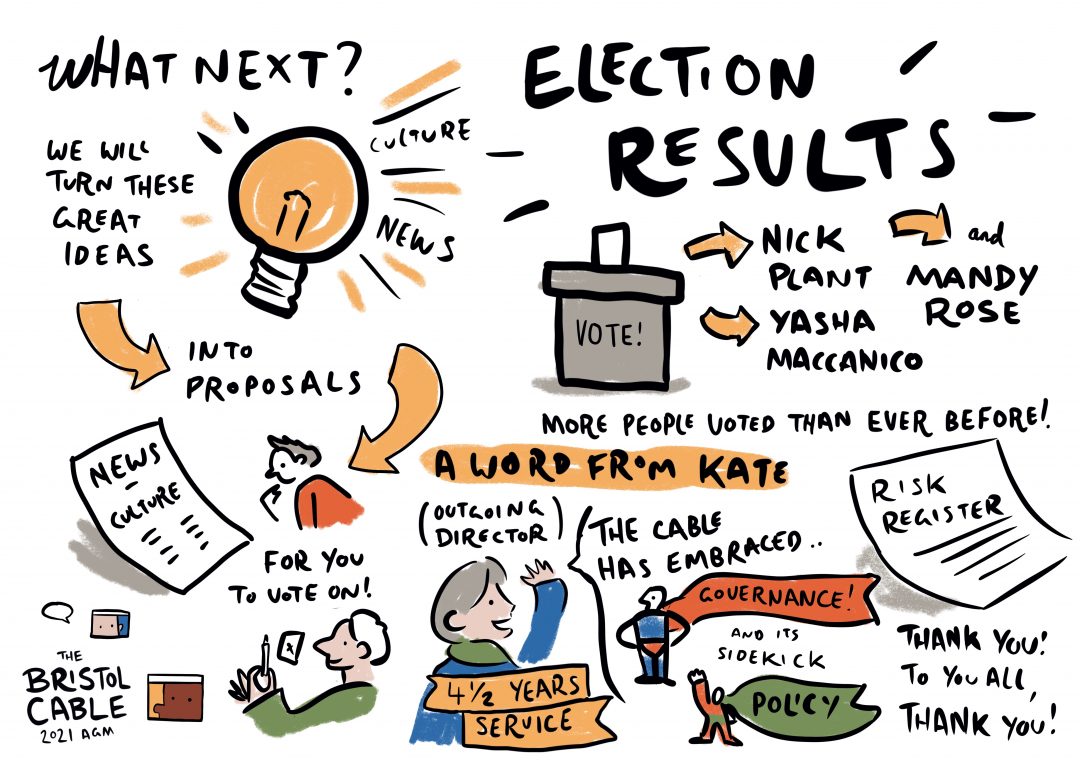 WHAT NEXT?
WE WILL
TURN THESE
GREAT
IDEAS
CULTURE
NEWS
INTO
PROPOSALS
NEWS
-
CULTURE
FOR YOU
TO VOTE ON!
x
THE
BRISTOL
CABLE
2021 AGM
ELECTION
RESULTS
VOTE!
NICK
PLANT
YASHA
MACCANICO
and
MANDY
ROSE
MORE PEOPLE VOTED THAN EVER BEFORE!
A WORD FROM KATE
(OUTGOING
DIRECTOR)
4 1/2 YEARS
SERVICE
THE CABLE
HAS EMBRACED..
GOVERNANCE!
AND ITS
SIDEKICK
POLICY
RISK
REGISTER
THANK YOU!
TO YOU ALL,
THANK YOU!